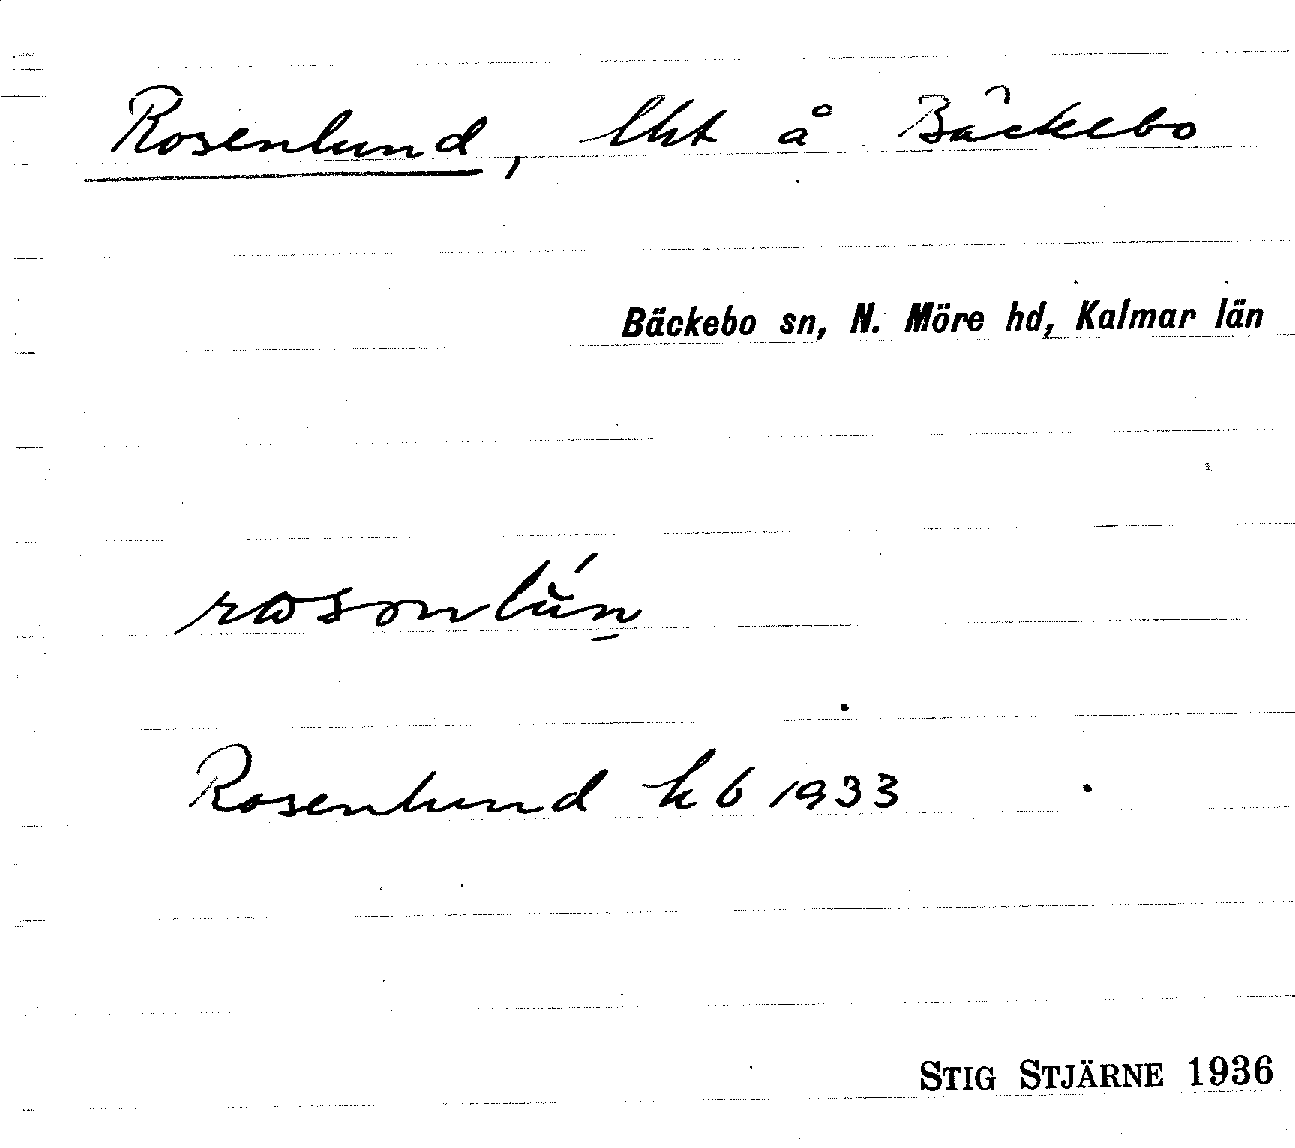 Rosenlund, lht å Bäckebo
Bäckebo sn, N. Möre hd, Kalmar län
Rosenlund kb 1933
STIG STJÄRNE 1936